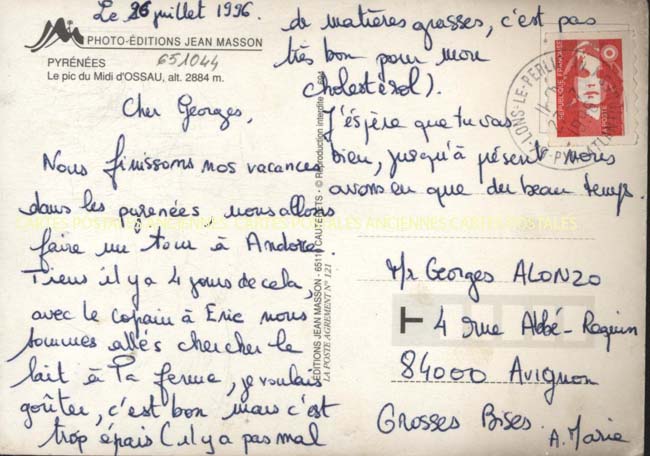 Le 26 juillet 1996.
PHOTO-ÉDITIONS JEAN MASSON
PYRÉNÉES 651044
Le pic du Midi d'OSSAU, alt. 2884 m.
Cher Georges,
Nous finissons nos vacances
dans les pyrenées, nous allons
faire un tour à Andorre.
Tiens il y a 4 jours de cela,
avec le copain à Eric nous
sommes allés chercher le
lait à la ferme, je voulais
goûter, c'est bon mais c'est
trop épais (il y a pas mal
de matières grasses, c'est pas
très bon pour mon
cholestérol).
J'espère que tu vas
bien, jusqu'à présent nous
avons eu que du beau temps.
ÉDITIONS JEAN MASSON - 65110 CAUTERETS - © Reproduction interdite
LA POSTE AGREMENT N° 121
RÉPUBLIQUE FRANÇAISE
LA POSTE
LONS-LE-PERLIC
Mr Georges ALONZO
T 4 rue Abbé-Requin
84000 Avignon
Grosses Bises.
A. Marie
CARTES POSTALES ANCIENNES CARTES POSTALES ANCIENNES CARTES POSTALES